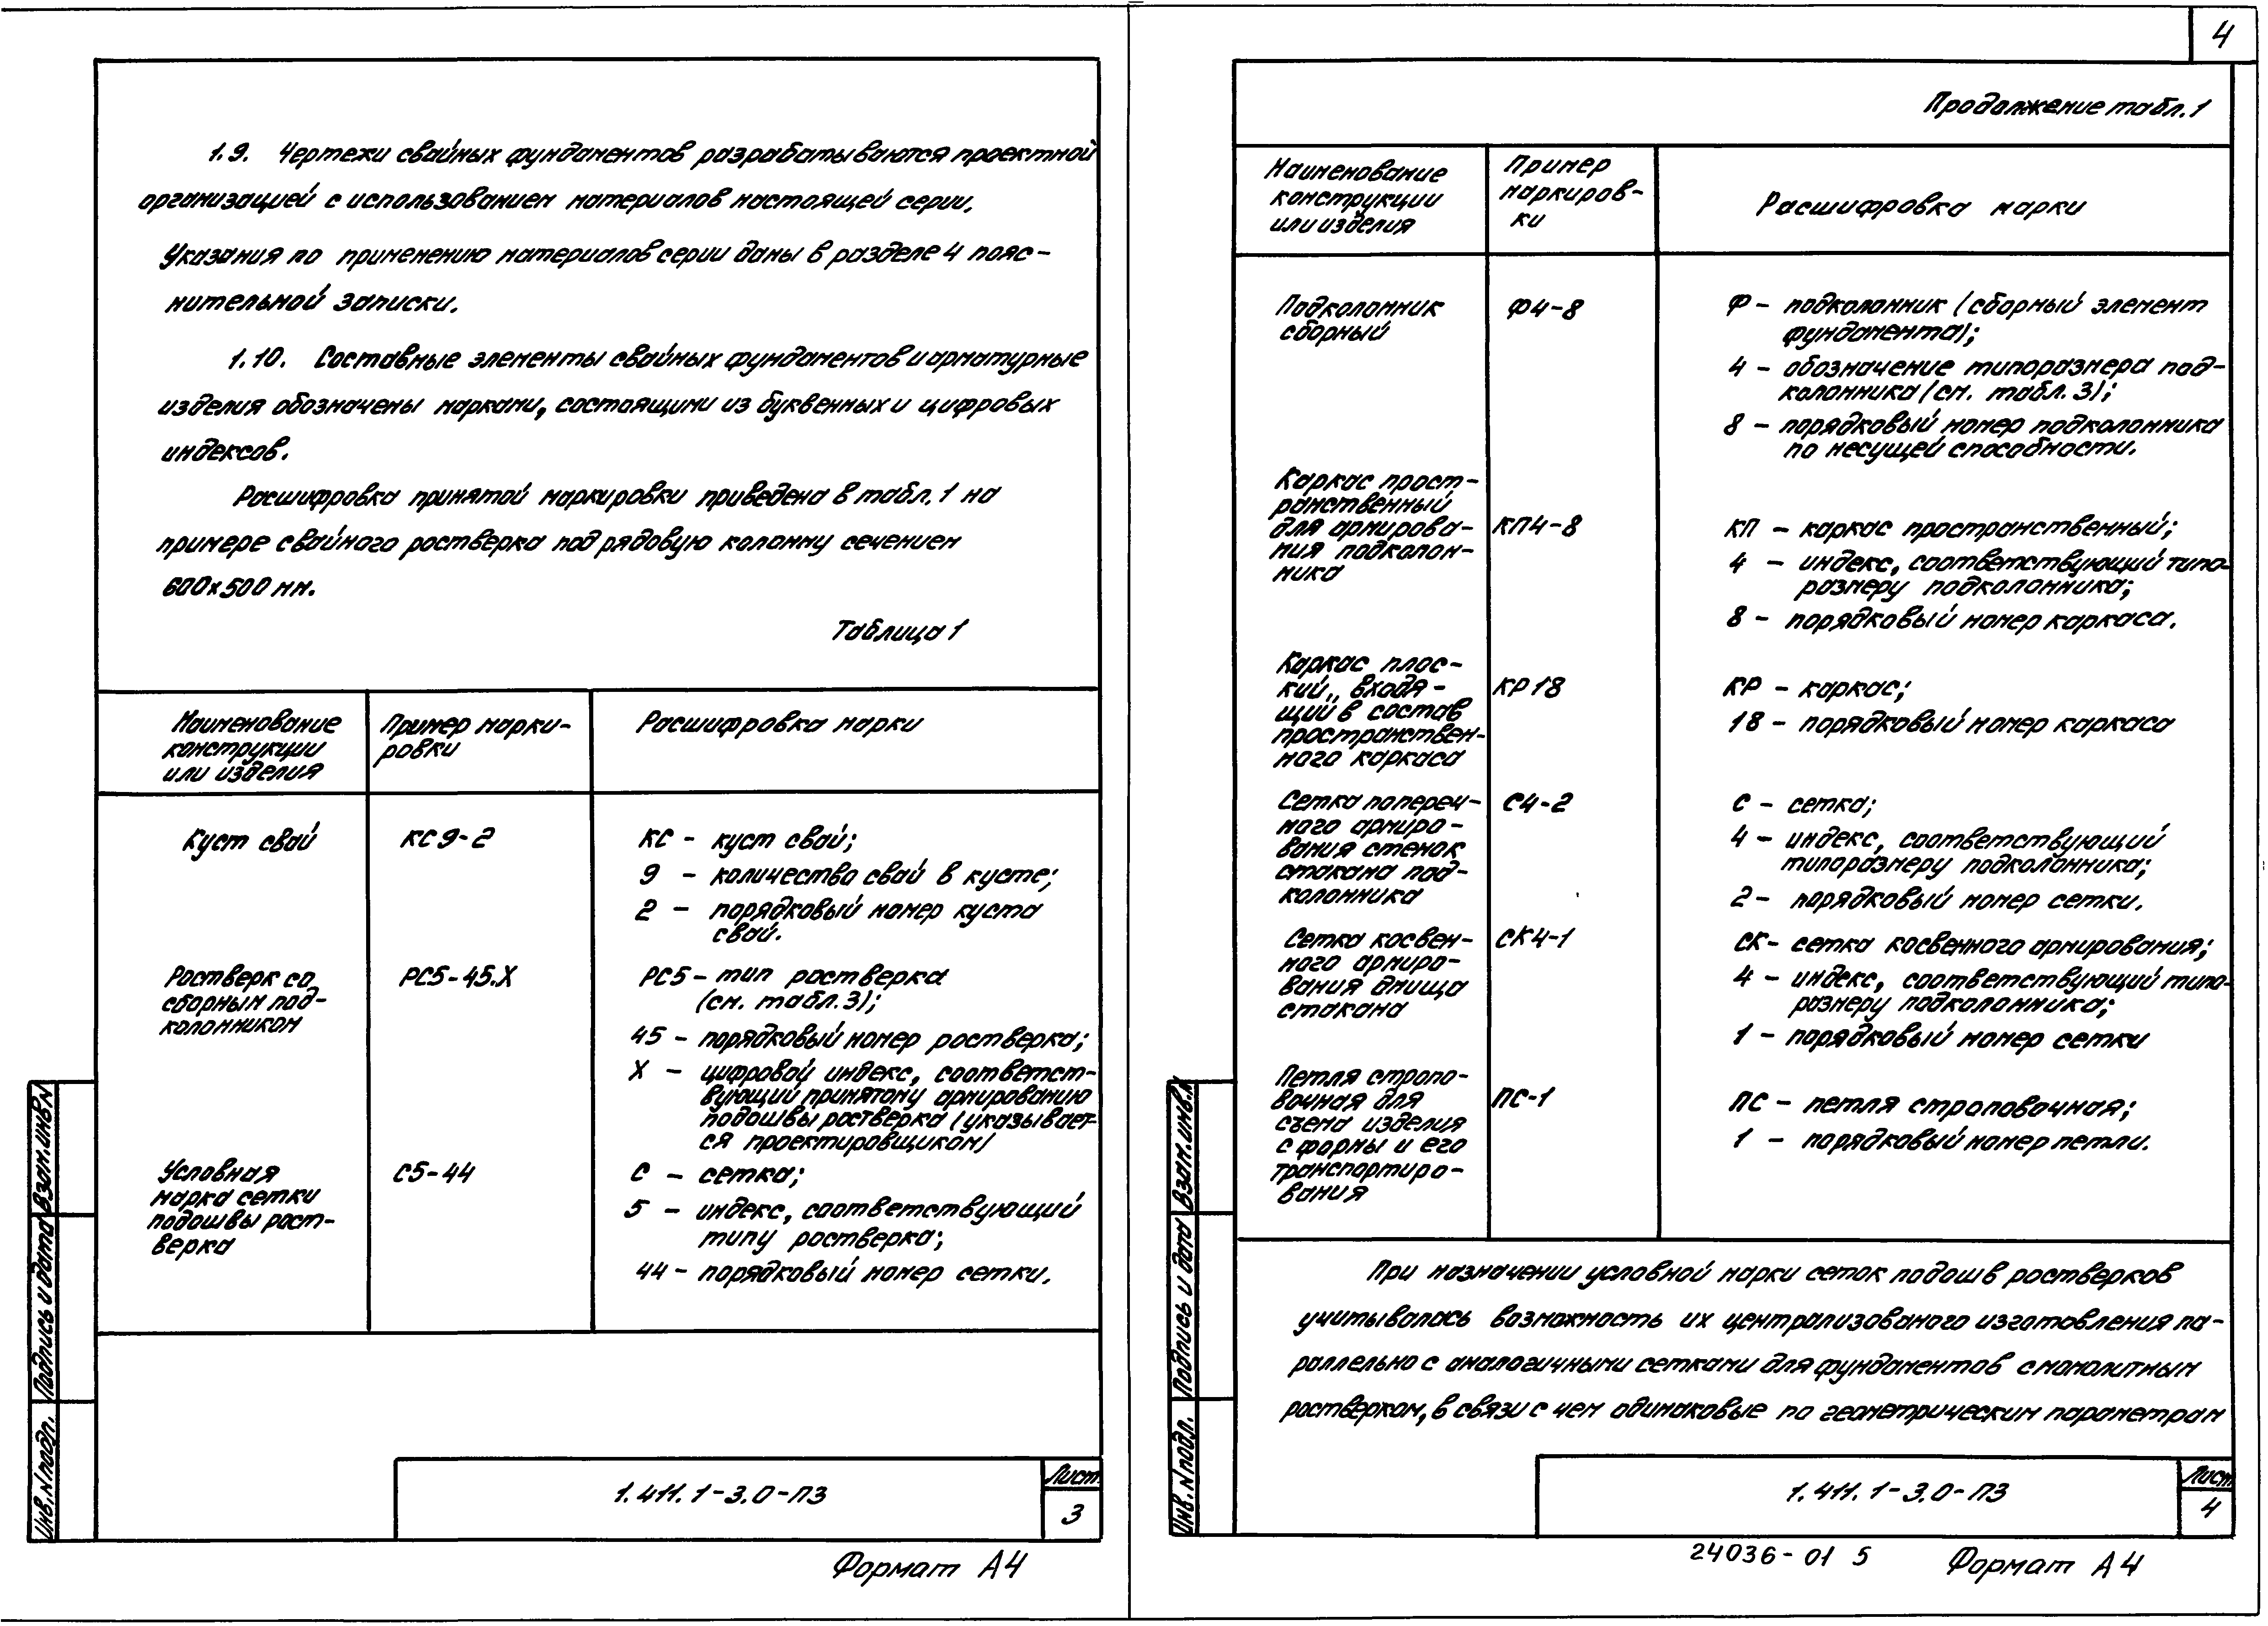 1.9. Чертежи свайных фундаментов разрабатываются проектной
организацией с использованием материалов настоящей серии.
Указания по применению материалов серии даны в разделе 4 пояс-
нительной записки.
1.10. Составные элементы свайных фундаментов и арматурные
изделия обозначены марками, состоящими из буквенных и цифровых
индексов.
Расшифровка принятой маркировки приведена в табл. 1 на
примере свайного ростверка под рядовую колонну сечением
600х500 мм.
Таблица 1
Наименование
конструкции
или изделия
Пример марки-
ровки
Расшифровка марки
Куст свай
КС 9-2
КС - куст свай;
9 - количество свай в кусте;
2 - порядковый номер куста
свай.
Ростверк со
сборным под-
колонником
РС5-45.Х
РС5 - тип ростверка
(см. табл. 3);
45 - порядковый номер ростверка;
Х - цифровой индекс, соответст-
вующий принятому армированию
подошвы ростверка (указывает-
ся проектировщиком)
Условная
марка сетки
подошвы рост-
верка
С5-44
С - сетка;
5 - индекс, соответствующий
типу ростверка;
44 - порядковый номер сетки.
Взам. инв. N
Подпись и дата
Инв. N подл.
1.411.1-3.0-ПЗ
Лист
3
Формат А4
4
Продолжение табл. 1
Наименование
конструкции
или изделия
Пример
маркиров-
ки
Расшифровка марки
Подколонник
сборный
Ф4-8
Ф - подколонник (сборный элемент
фундамента);
4 - обозначение типоразмера под-
колонника (см. табл. 3);
8 - порядковый номер подколонника
по несущей способности.
Каркас прост-
ранственный
для армирова-
ния подколон-
ника
КП4-8
КП - каркас пространственный;
4 - индекс, соответствующий типо-
размеру подколонника;
8 - порядковый номер каркаса.
Каркас плос-
кий, входя-
щий в состав
пространствен-
ного каркаса
КР18
КР - каркас;
18 - порядковый номер каркаса
Сетка попереч-
ного армиро-
вания стенок
стакана под-
колонника
С4-2
С - сетка;
4 - индекс, соответствующий
типоразмеру подколонника;
2 - порядковый номер сетки.
Сетка косвен-
ного армиро-
вания днища
стакана
СК4-1
СК - сетка косвенного армирования;
4 - индекс, соответствующий типо-
размеру подколонника;
1 - порядковый номер сетки
Петля стропо-
вочная для
съема изделия
с формы и его
транспортиро-
вания
ПС-1
ПС - петля строповочная;
1 - порядковый номер петли.
При назначении условной марки сеток подошв ростверков
учитывалась возможность их централизованого изготовления па-
раллельно с аналогичными сетками для фундаментов с монолитным
ростверком, в связи с чем одинаковые по геометрическим параметрам
Взам. инв. N
Подпись и дата
Инв. N подл.
1.411.1-3.0-ПЗ
Лист
4
24036-01 5
Формат А4